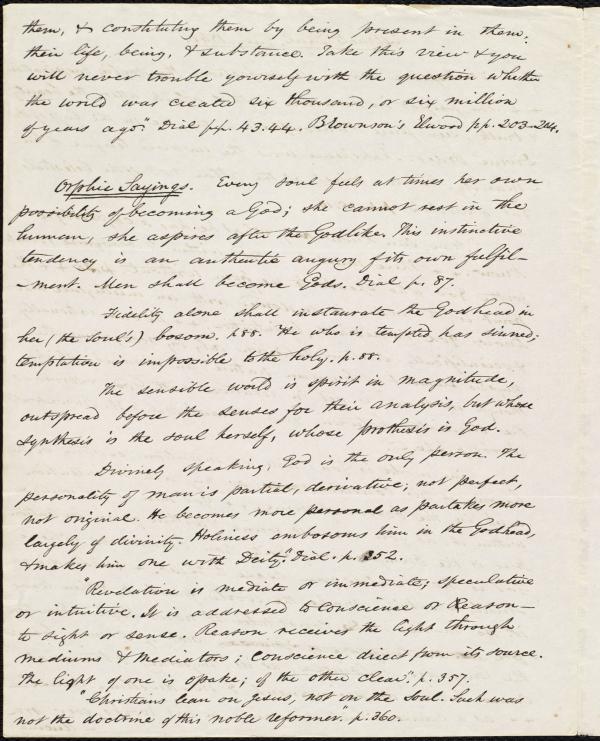 them, & constituting them by being present in them,
their life, being, & substance. Take this view & you
will never trouble yourself with the question whether
the world was created six thousand, or six million
of years ago." Dial pp. 43.44. Brownson's Elwood pp. 203-204.
Orphic Sayings. Every soul feels at times her own
possibility of becoming a God; she cannot rest in the
human, she aspires after the Godlike. This instinctive
tendency is an authentic augury of its own fulfil-
-ment. Men shall become Gods. Dial p. 87.
Fidelity alone shall instaurate the Godhead in
her (the Soul's) bosom. p.88. "He who is tempted has sinned;
temptation is impossible to the holy. p. 88.
The sensible world is spirit in magnitude,
outspread before the senses for their analysis, but whose
synthesis is the soul herself, whose prothesis is God.
Divinely speaking, God is the only person. The
personality of man is partial, derivative; not perfect,
not original. He becomes more personal as partakes more
largely of divinity. Holiness embosoms him in the Godhead,
& makes him one with Deity." Dial. p. 352.
"Revelation is mediate or immediate; speculative
or intuitive. It is addressed to Conscience or Reason—
to sight or sense. Reason receives the light through
mediums & mediators; Conscience direct from its source.
The light of one is opake; of the other clear." p. 357.
"Christians lean on Jesus, not on the Soul. Such was
not the doctrine of this noble reformer." p. 360.